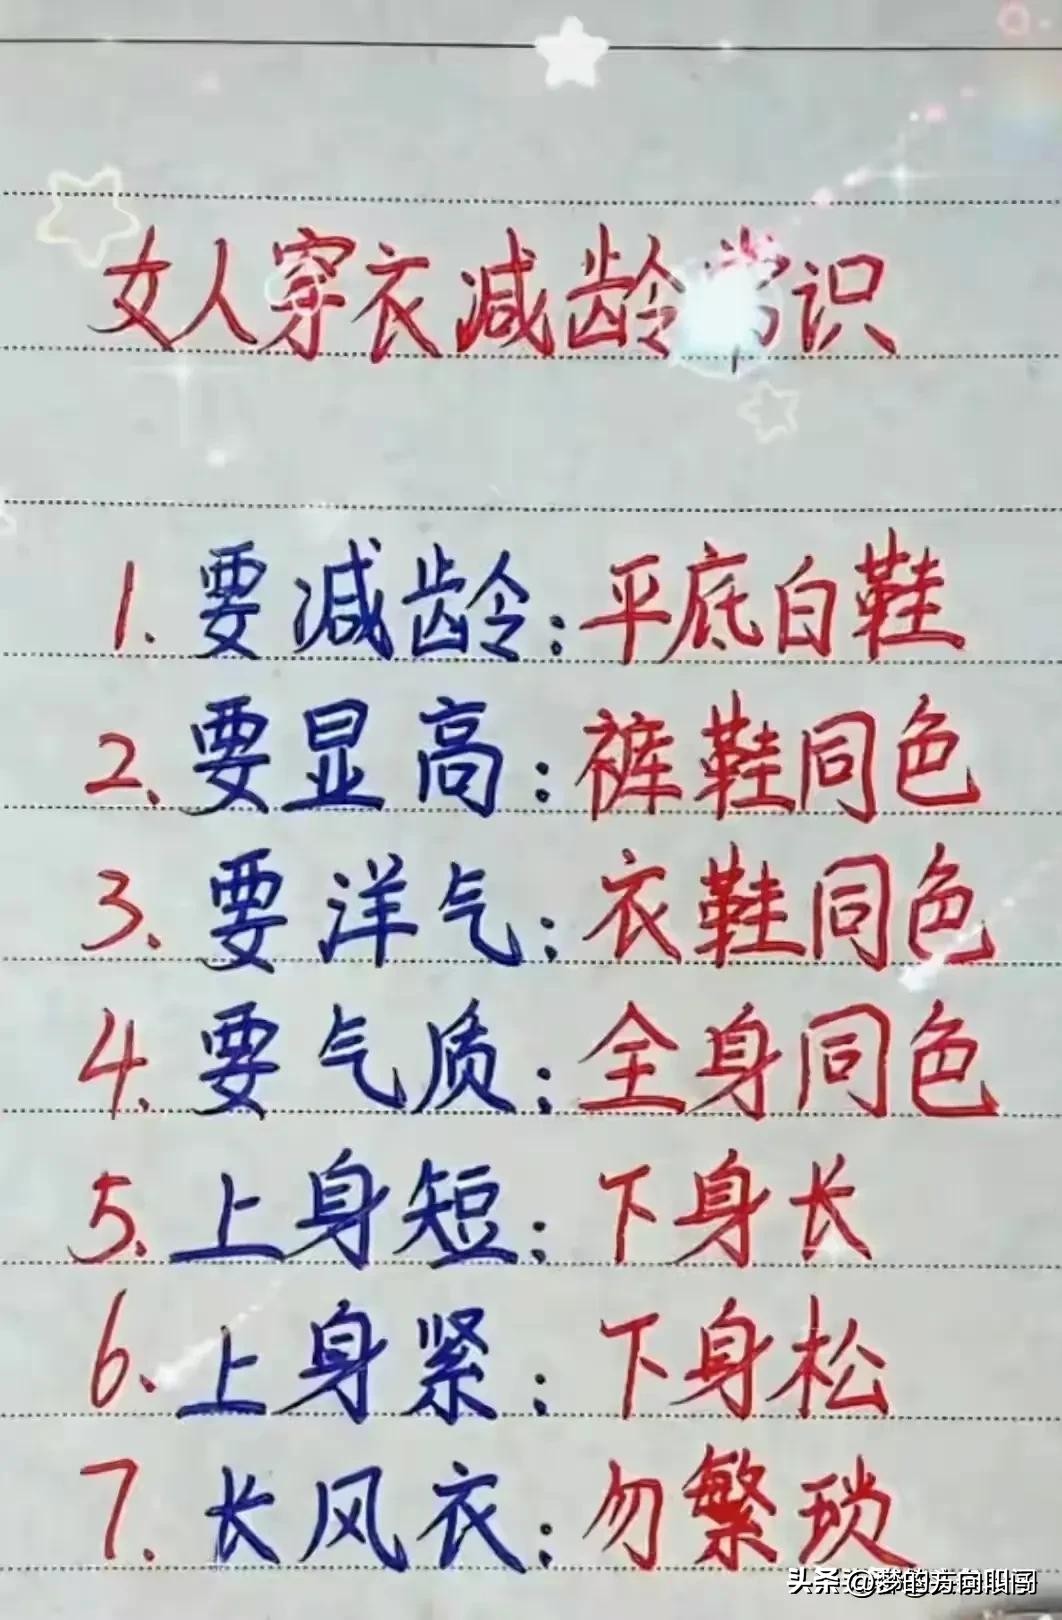 女人穿衣减龄常识
1. 要减龄:平底白鞋
2. 要显高:裤鞋同色
3. 要洋气:衣鞋同色
4. 要气质:全身同色
5. 上身短:下身长
6. 上身紧:下身松
7. 长风衣:勿繁琐
头条@梦的方向